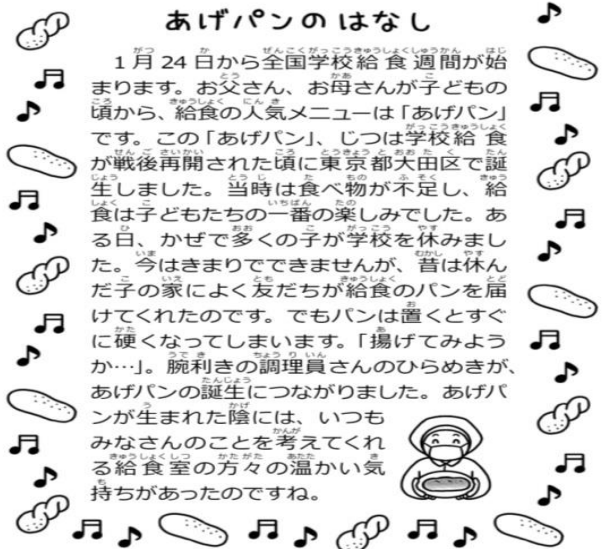 あげパンのはなし
1月24日から全国学校給食週間が始
まります。お父さん、お母さんが子どもの
頃から、給食の人気メニューは「あげパン」
です。この「あげパン」、じつは学校給食
が戦後再開された頃に東京都大田区で誕
生しました。当時は食べ物が不足し、給
食は子どもたちの一番の楽しみでした。あ
る日、かぜで多くの子が学校を休みまし
た。今はきまりでできませんが、昔は休ん
だ子の家によく友だちが給食のパンを届
けてくれたのです。でもパンは置くとすぐ
に硬くなってしまいます。「揚げてみよう
か…」。腕利きの調理員さんのひらめきが、
あげパンの誕生につながりました。あげパ
ンが生まれた陰には、いつも
みなさんのことを考えてくれ
る給食室の方々の温かい気
持ちがあったのですね。